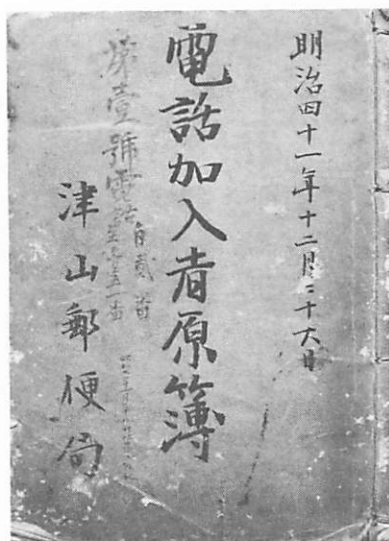 明治四十一年十二月二十六日
電話加入者原簿
第壹號電話
自貳番
津山郵便局